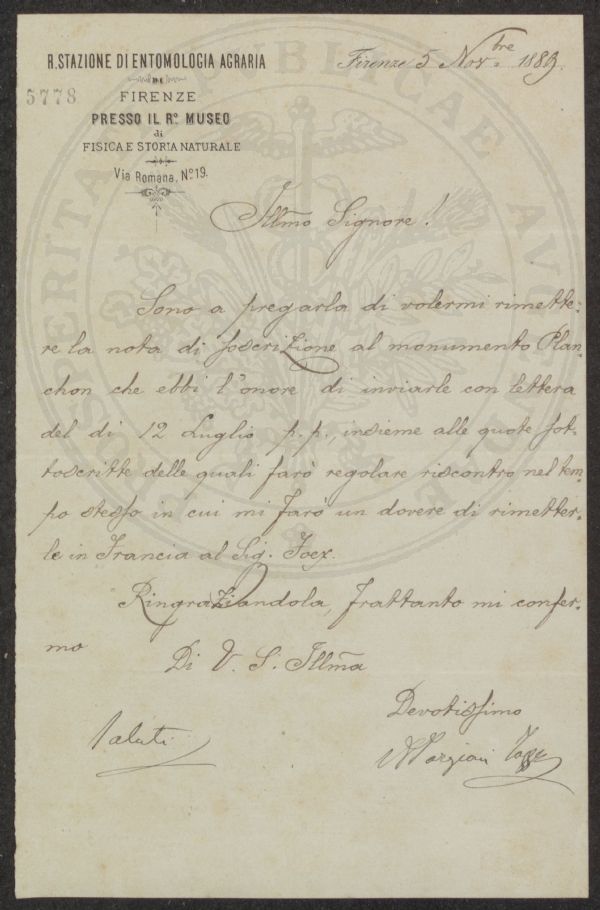 R. STAZIONE DI ENTOMOLOGIA AGRARIA
DI
FIRENZE
PRESSO IL R.º MUSEO
di
FISICA E STORIA NATURALE
Via Romana, Nº 19.
5778
Firenze 5 Nov.bre 1889.
Illmo Signore!
Sono a pregarla di volermi rimette:
re la nota di soscrizione al monumento Plan:
chon che ebbi l'onore di inviarle con lettera
del di 12 Luglio p. p., insieme alle quote sot:
toscritte delle quali farò regolare riscontro nel tem:
po stesso in cui mi farò un dovere di rimetter:
le in Francia al Sig. Foex.
Ringraziandola, frattanto mi confer:
mo
Di V. S. Illma
Devotissimo
Saluti